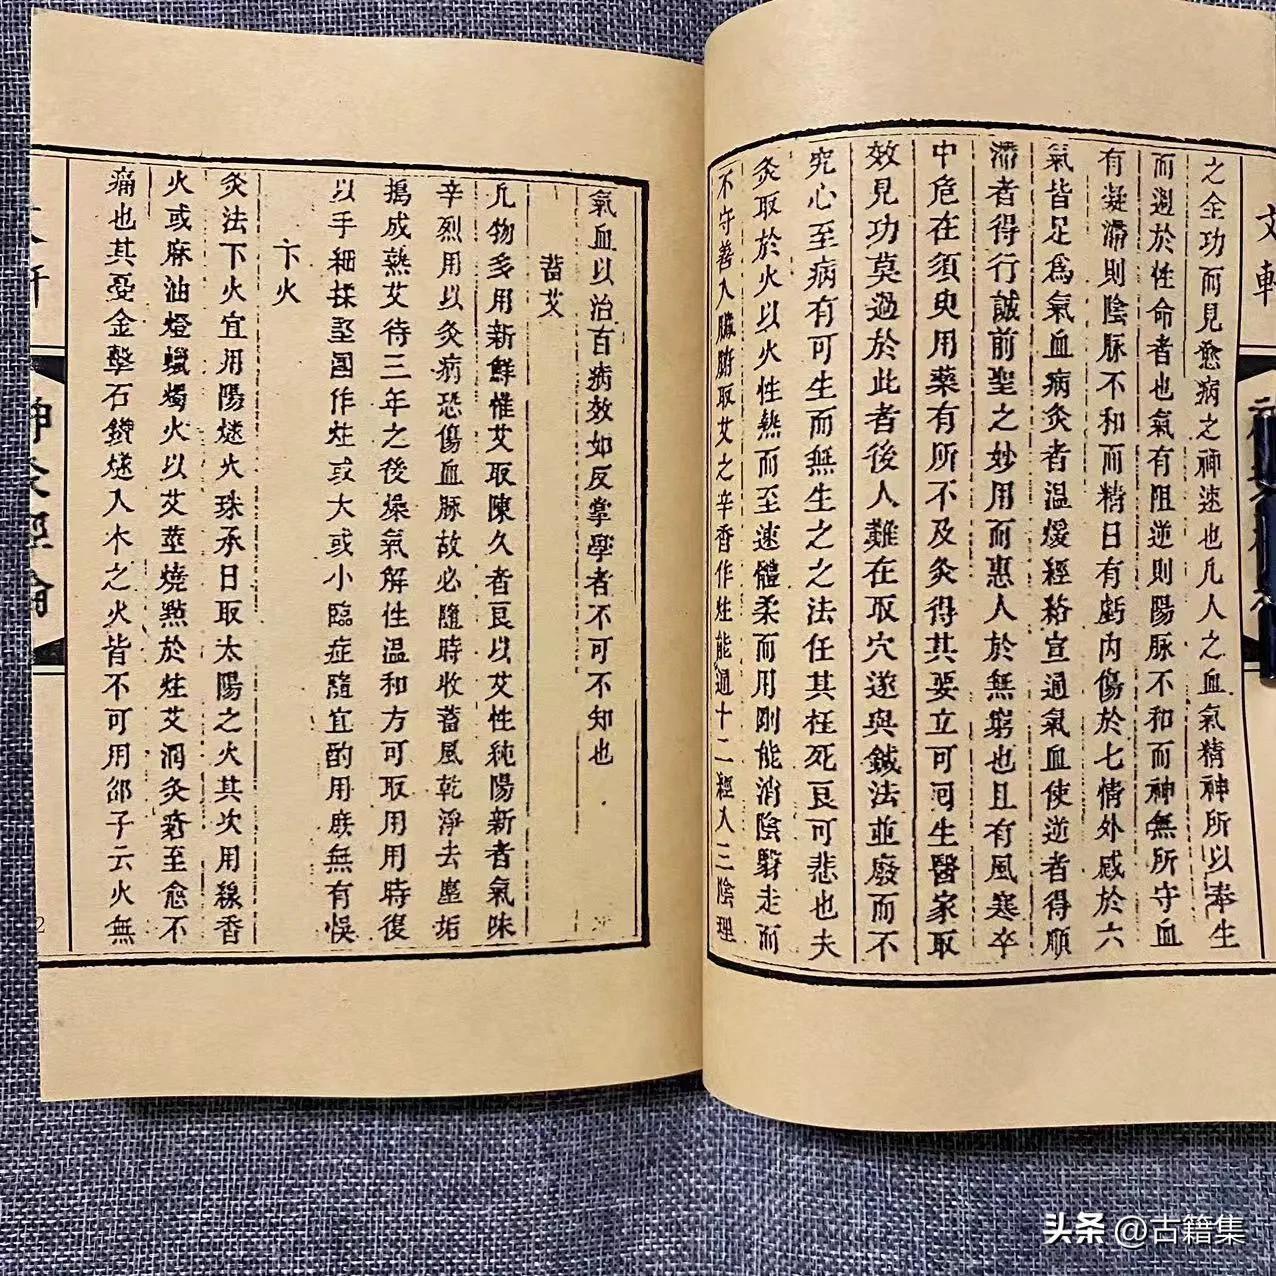 之全功而見愈病之神速也凡人之血氣精神所以奉生
而週於性命者也氣有阻逆則陽脉不和而神無所守血
有凝滯則陰脉不和而精日有虧內傷於七情外感於六
氣皆足為氣血病灸者温煖經絡宣通氣血使逆者得順
滯者得行誠前聖之妙用而惠人於無窮也且有風寒卒
中危在須臾用藥有所不及灸得其要立可囘生醫家取
效見功莫過於此者後人難在取穴遂與鍼法並廢而不
究心至病有可生而無生之之法任其枉死良可悲也夫
灸取於火以火性熱而至速體柔而用剛能消陰翳走而
不守善入臟腑取艾之辛香作炷能通十二經入三陰理
氣血以治百病效如反掌學者不可不知也
蓄艾
凡物多用新鮮惟艾取陳久者良以艾性純陽新者氣味
辛烈用以灸病恐傷血脉故必隨時收蓄風乾淨去塵垢
搗成熟艾待三年之後燥氣解性温和方可取用用時復
以手細揉堅團作炷或大或小臨症隨宜酌用庶無有悞
卞火
灸法下火宜用陽燧火珠承日取太陽之火其次用線香
火或麻油燈蠟燭火以艾莖燒㸃於炷艾潤灸瘡至愈不
痛也其戞金擊石鑽燧入木之火皆不可用邵子云火無
神灸經論
文軒
2
头条 @古籍集